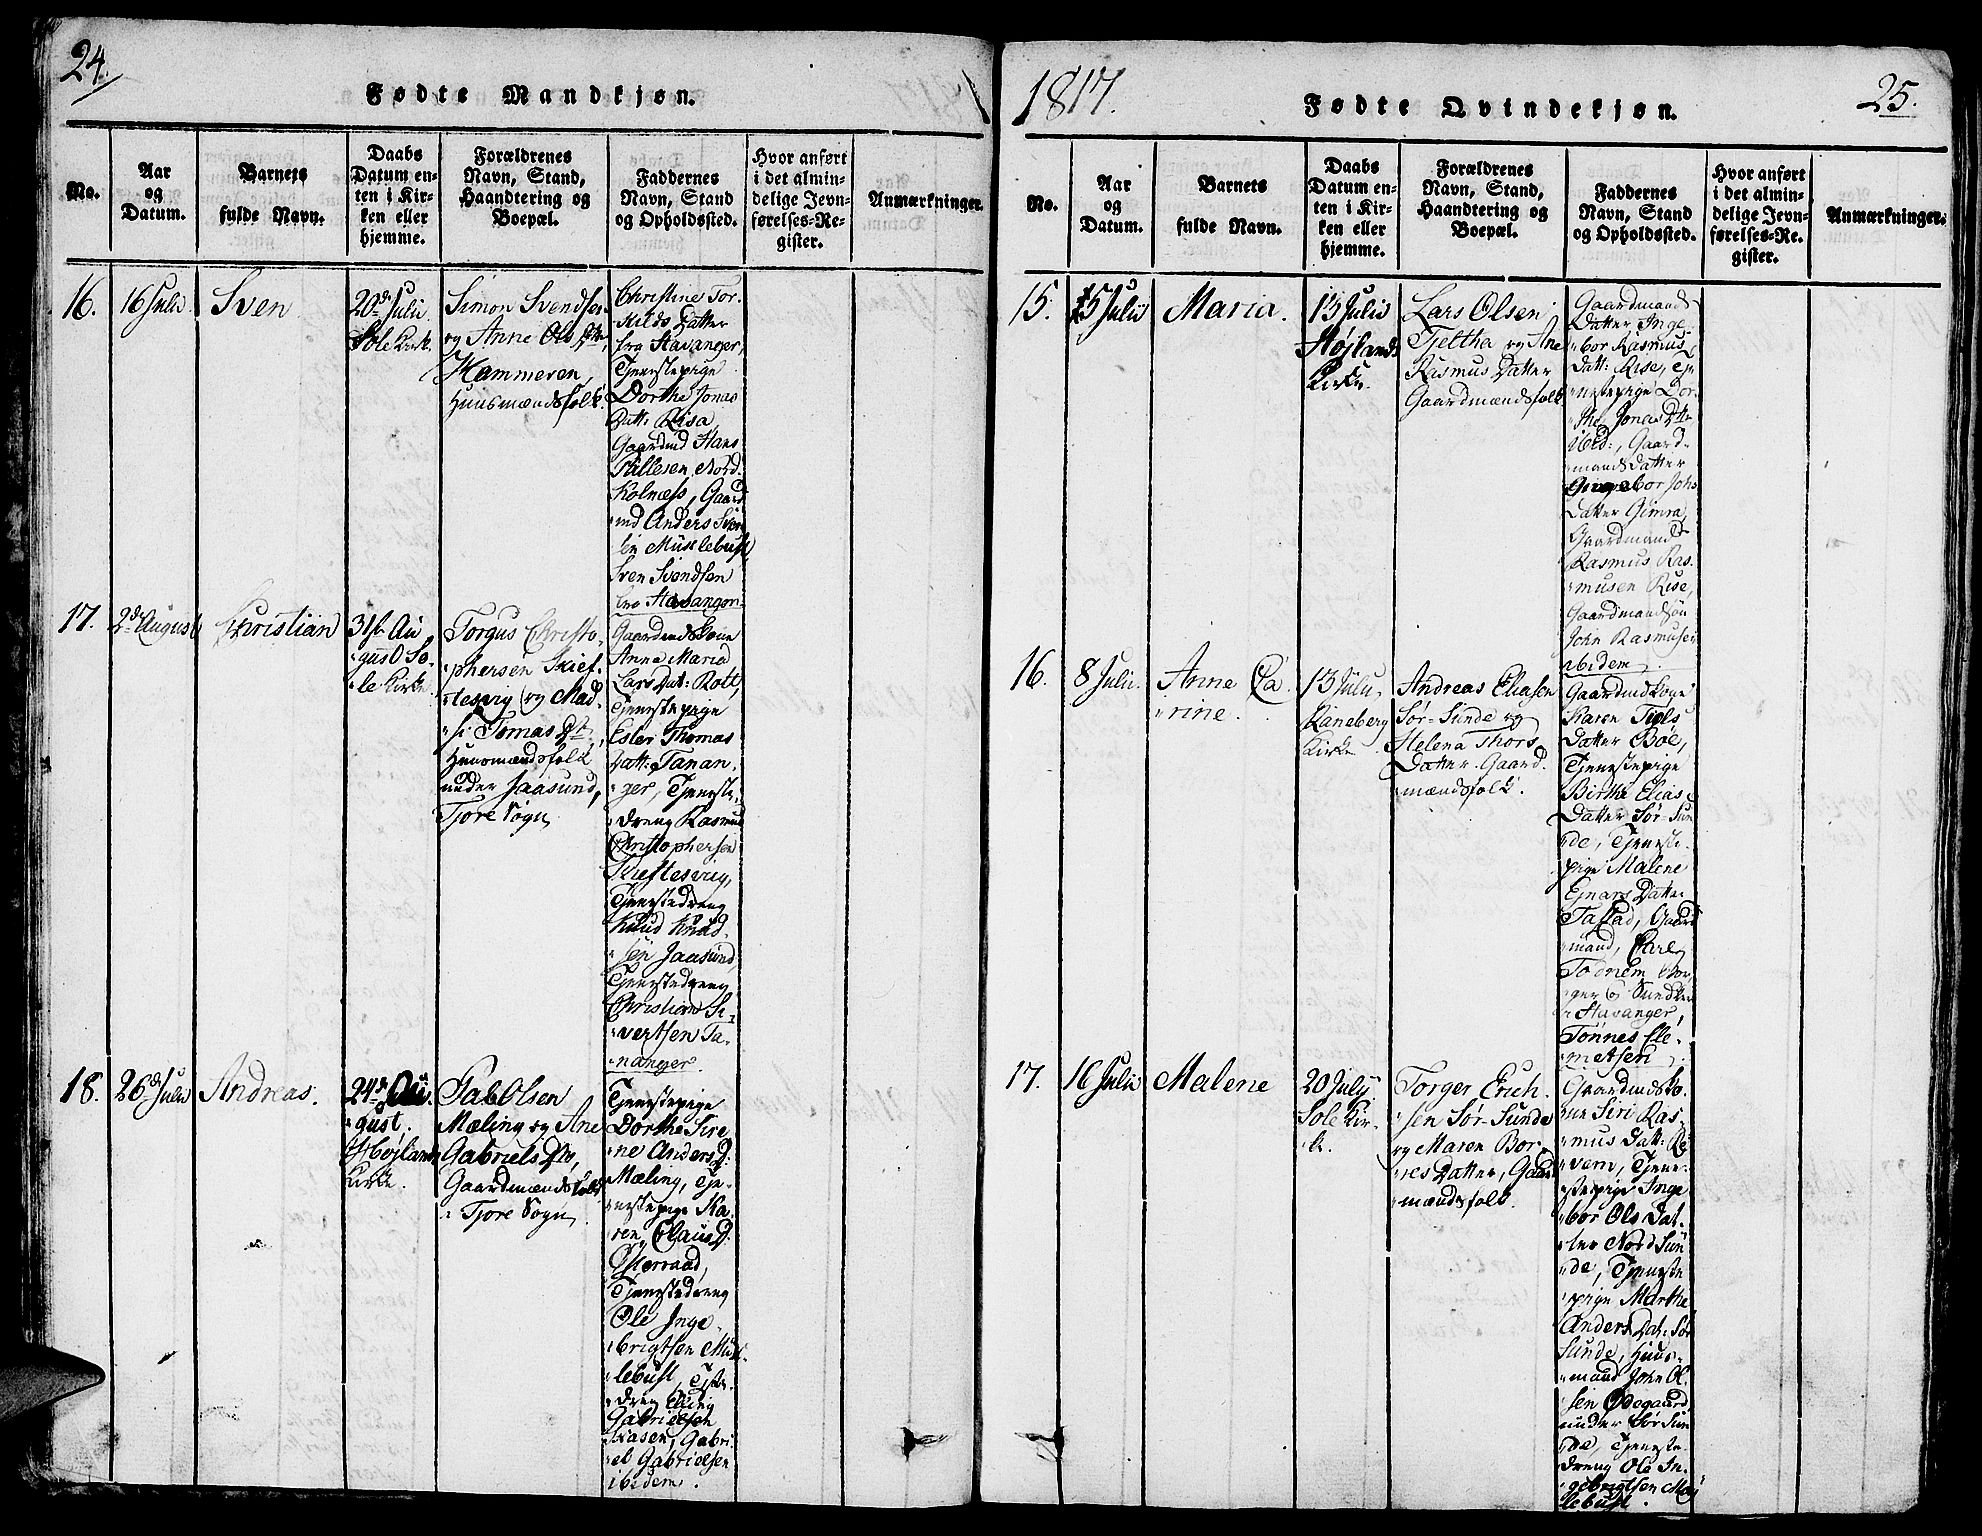 24.
Fødte Mandkjøn.
No.
Aar
og
Datum.
Barnets
fulde Navn.
Daabs
Datum en-
ten i Kir-
ken eller
hjemme.
Forældrenes
Navn, Stand,
Haandtering og
Boepæl.
Faddernes
Navn, Stand
og Opholdssted.
Hvor anført
i det almin-
delige Jevn-
førelses-Re-
gister.
Anmærkninger.
16.
16 Julii
Sven
20de Julii
Sole Kirk.
Simon Svendsen
og Anne Ols Dtr,
Hammeren,
Huusmændsfolk.
Christine Tor-
kilds Datter
fra Stavanger,
Tjenestepige
Dorthe Jonas
Datt: Risa,
Gaardmd Hans
Pallesen Nord
Kolness, Gaard
md Anders Sven
sen Müklebust
Sven Svendsen
fra Stavanger
17.
2de August
Christian
31te Au
gust So-
le Kirke
Torgus Christo-
phersen Skief-
tesvig og Mad-
si Tomas Dtr,
Huusmændsfolk
under Jaasund,
Tjore Sogn
Gaardmdskone
Anna Maria
Lars Dat: Rott,
Tjenestepige
Ester Thomas
Datt: Tanan-
ger, Tjeneste-
dreng Rasmus
Christophersen
Skieftesvig,
Tjenestedreng
Knud Knud-
sen Jaasund,
Tjenestedreng
Christian Si-
vertsen Ta-
nanger.
18.
26de Julii
Andreas.
24de Au-
gust.
Højlands
Kirke.
Gab Olsen
Mæling og Ane
Gabriels Dtr,
Gaardmændsfolk
i Tjore Sogn
Tjenestepige
Dorthe Sire
ne Anders D:
Mæling, Tje-
nestepige Ka-
ren Claus D:
Østeraad,
Tjenestedreng
Ole Inge-
brigtsen Mük-
lebust, Tjste-
dreng Elling
Gabrielsen
Hasen, Gabri-
el Gabrielsen
ibidem.
1817.
Fødte Qvindekjøn.
25.
No.
Aar
og
Datum.
Barnets
fulde Navn.
Daabs
Datum en-
ten i Kir-
ken eller
hjemme.
Forældrenes
Navn, Stand,
Haandtering og
Boepæl.
Faddernes
Navn, Stand
og Opholdssted.
Hvor anført
i det almin-
delige Jevn-
førelses-Re-
gister.
Anmærkninger.
15.
5 Julii
Maria.
13 Julii
Højlands
Kirke.
Lars Olsen
Tjeltha og Ane
Rasmus Datter
Gaardmændsfolk
Gaardmands
Datter Inge-
bor Rasmus
Datt: Rise, Tje
nestepige Dor-
the Jonas Dtr
ibid:, Gaard-
mands Datter
Ingebor Johs
Datter Gimra,
Gaardmand
Rasmus Ras-
musen Rise,
Gaardmandsøn
John Rasmusen
ibidem.
16.
8 Julii.
Anne Ca-
rine.
13 Julii,
Raneberg
Kirke
Andreas Eliasen
Sør-Sunde og
Helena Thors
Datter Gaard-
mændsfolk.
Gaardmdskone
Karen Tiøls
Datter Bøe,
Tjenestepige
Birthe Elias
Datter Sør-Sun
de, Tjeneste-
pige Malene
Ejnars Datter
Tastad, Gaard
mand, Carl
Todnem, Bor-
ger og
Stavanger,
Tønnes Ele-
metsen
17.
16 Julii
Malene
20 Julij
Sole Kir-
k.
Torger Erich-
sen Sør-Sunde
og Maren Bor-
res Datter, Gaard
mændsfolk.
Gaardmdsko-
ne Siri Ras-
mus Datt: Re
vem, Tjene-
stepige Inge
bor Ols Dat-
ter Nord Sun
de, Tjeneste
pige Marthe
Anders Dat: Sør
Sunde, Huus-
mand John Ol-
sen Ødegaard
under Sør Sun
de, Tjeneste-
dreng Ole In-
gebrigtsen Myk
lebust.